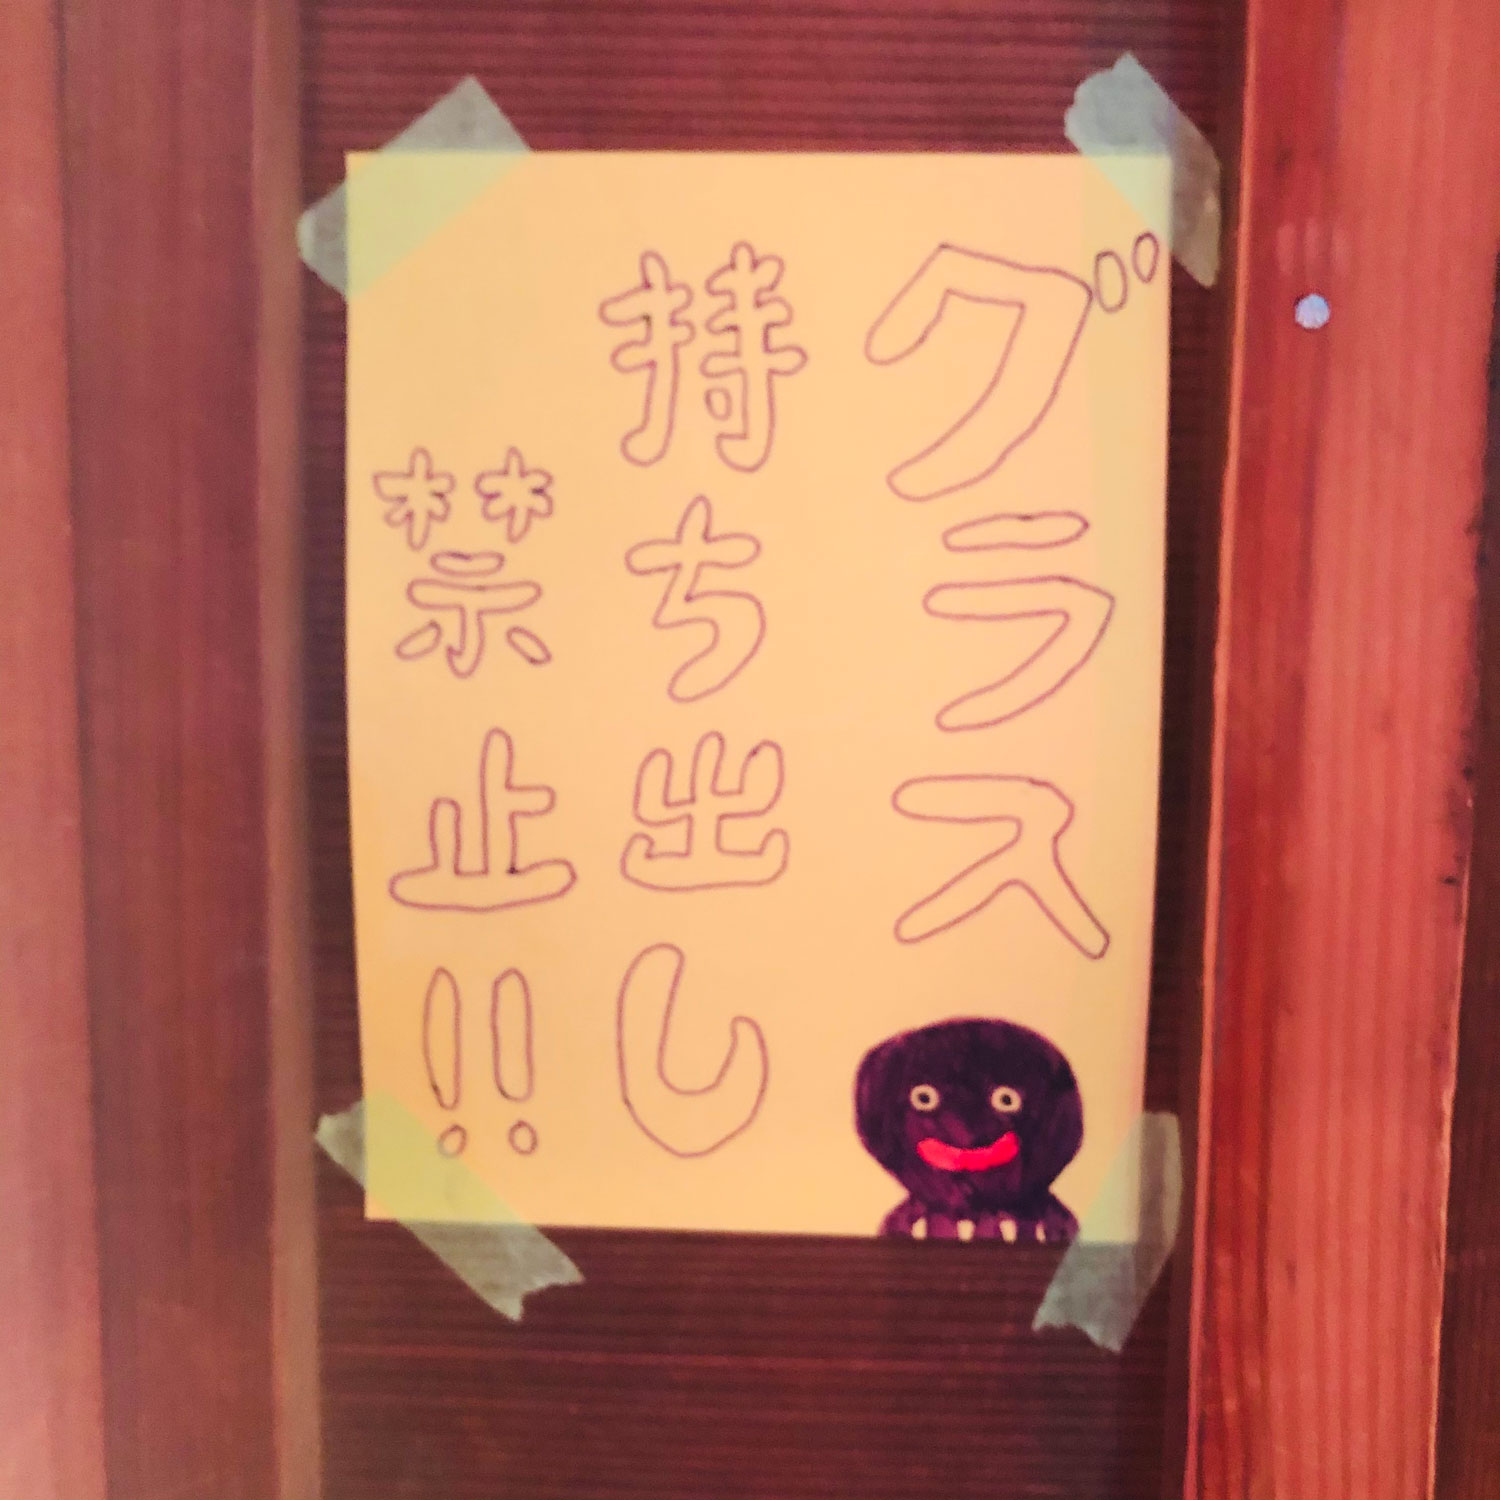 グラス
持ち出し
禁止!!